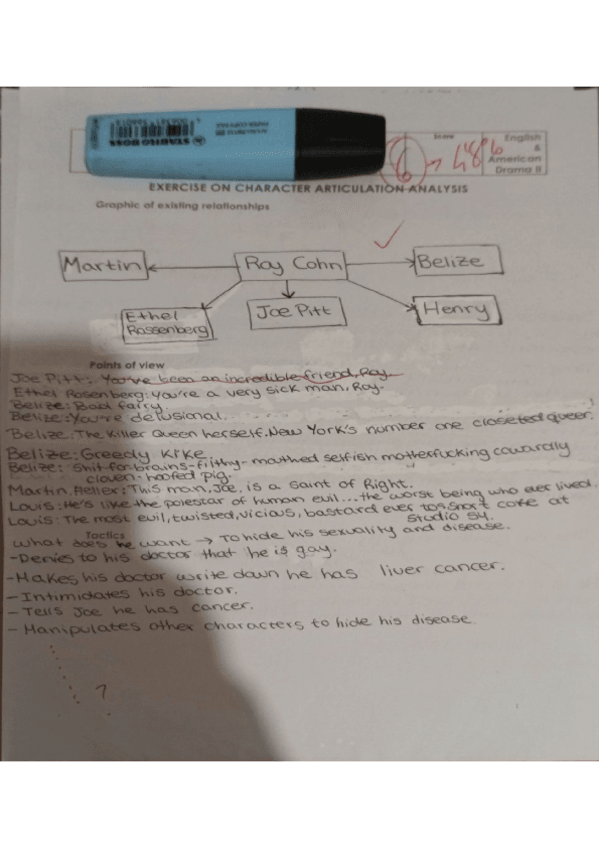 STABILO BOSS
Score
English
&
American
Drama II
6 → 48%
EXERCISE ON CHARACTER ARTICULATION ANALYSIS
Graphic of existing relationships
Martin
Roy Cohn
Belize
Ethel
Rossenberg
Joe Pitt
Henry
Points of view
Joe Pitt: You've been an incredible friend, Roy.
Ethel Rosenberg: you're a very sick man, Roy.
Belize: Bad fairy.
Belize: You're delusional.
Belize: The Killer Queen herself. New York's number one closeted queer.
Belize: Greedy Kike
Belize: Shit-for-brains-filthy-mouthed selfish motherfucking cowardly
cloven-hoofed pig.
Martin Heller: This man, Joe, is a Saint of Right.
Louis: He's like the polestar of human evil...the worst being who ever lived.
Louis: The most evil, twisted, vicious, bastard ever to snort coke at
Studio 54.
Tactics
What does he want → To hide his sexuality and disease.
-Denies to his doctor that he is gay.
-Makes his doctor write down he has liver cancer.
-Intimidates his doctor.
-Tells Joe he has cancer.
-Manipulates other characters to hide his disease.
?